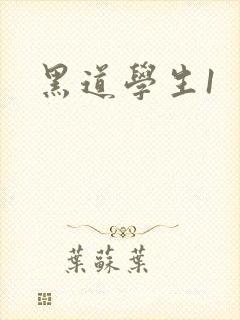 黑道學生1
葉蘇葉